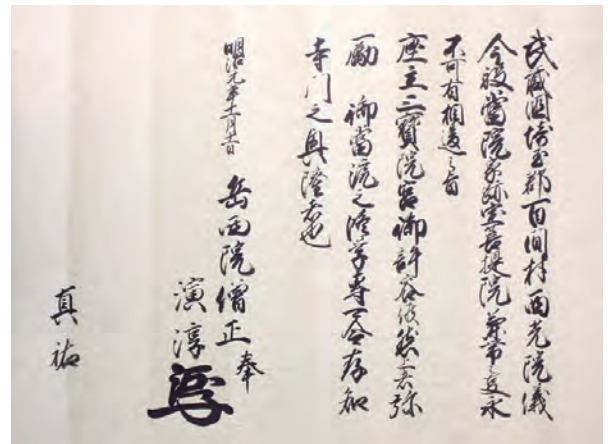 武藏國埼玉郡百間村西光院儀
今般當院家弥室菩提院兼帯之事永
不可有相違之旨
座主三寳院宮御許容仍然上者弥
勵 御當流之修学専可令存知
寺門之興隆者也
明治元年十一月十一日 岳西院僧正奉
演淳
真祐